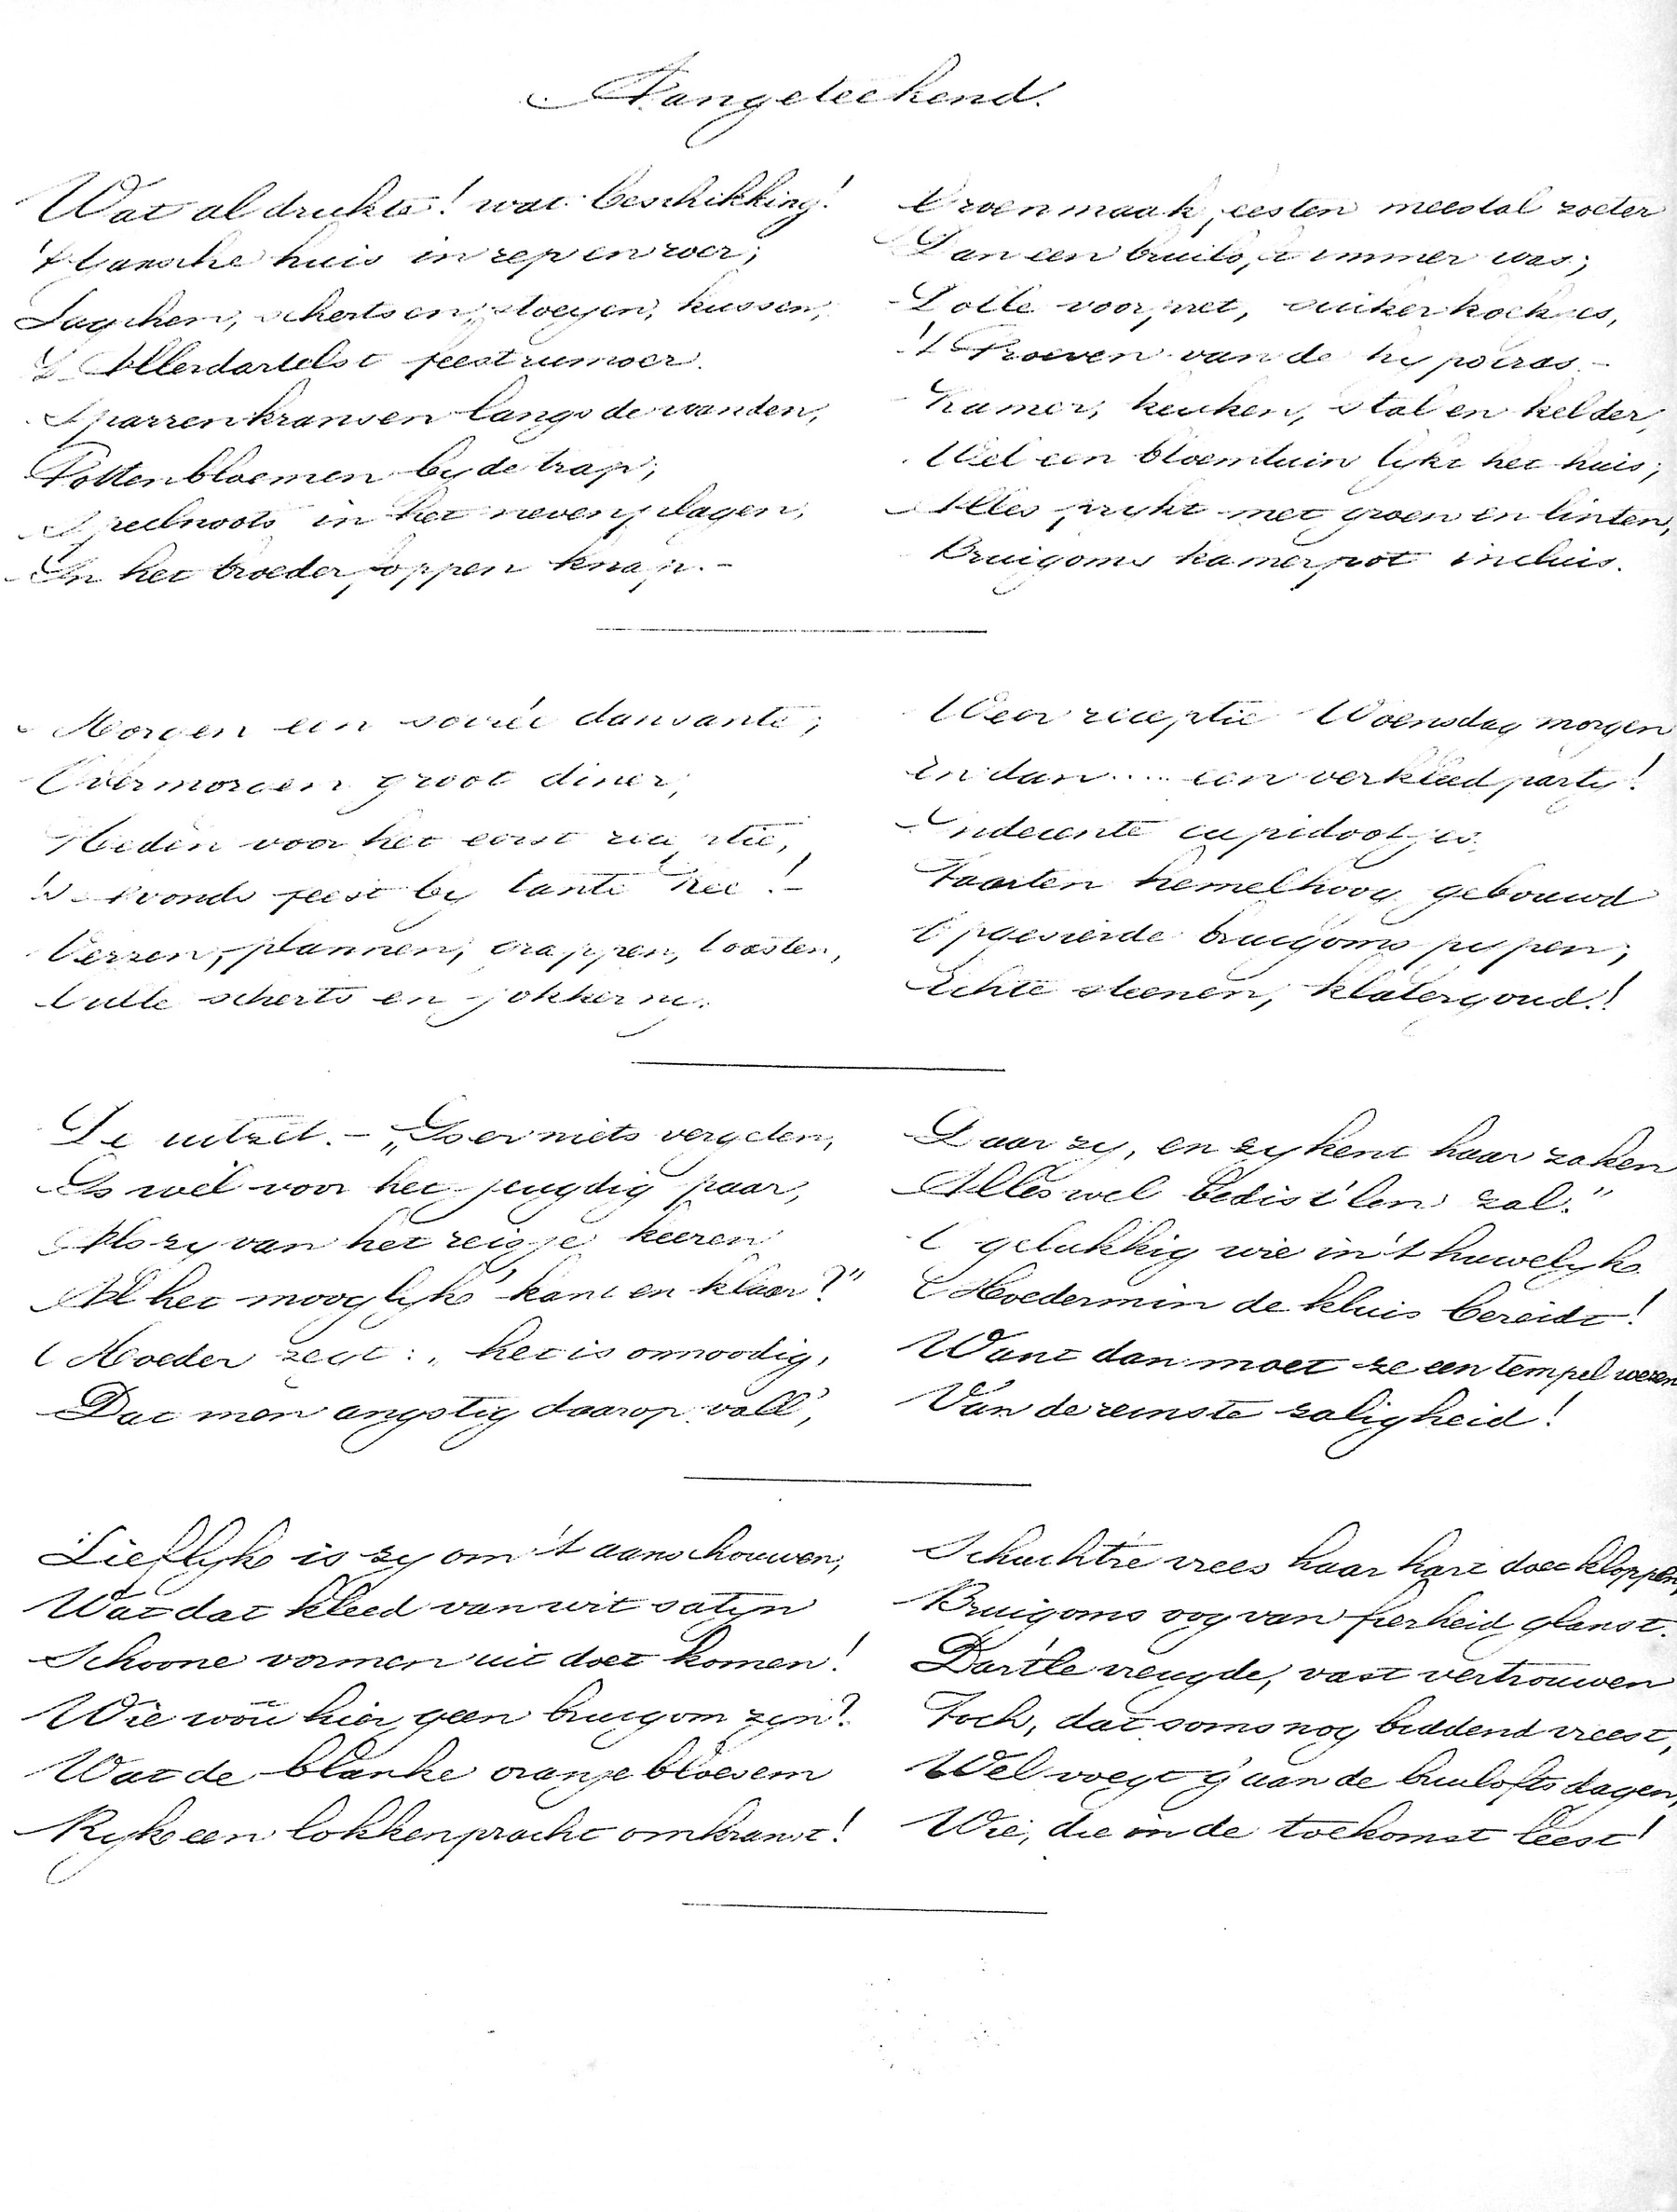 Aangeteekend.
Wat al drukte! wat beschikking!
't Gansche huis in rep en roer;
Lagchen, schertsen, stoeyen, kussen,
't Allerdartelst feestrumoer.
Sparrenkransen langs de wanden,
Potten bloemen by de trap;
Speelnoots in het neven plagen,
In het broeder foppen knap. -
Groenmaakfeesten meestal zoeter
Dan een bruiloft immer was;
Dolle voorpret, suikerkoekjes,
't Proeven van de hypocras. -
Kamer, keuken, stal en kelder,
Wel een bloemtuin lykt het huis;
Alles prykt met groen en linten,
Bruigoms kamerpot incluis.
Morgen een soirée dansante;
Overmorgen groot diner;
Heden voor het eerst receptie,
's Avonds feest by tante Kee! -
Verzen, plannen, grappen, toasten,
Dulle scherts en jokkerny.
Weer receptie Woensdag morgen
En dan .... een verkleedparty!
Indecente cupidootjes.
Taarten hemelhoog gebouwd
Opgesierde bruigoms pypen,
Echte steenen, klatergoud!!
De uitzet. - „Is er niets vergeten,
Is wel voor het jeugdig paar,
Als zy van het reisje keeren
Al het mooglyke kant en klaar?"
Moeder zegt: „het is onnoodig,
Dat men angstig daarop vall',
Daar zy, en zy kent haar zaken
Alles wel bedist'len zal."
O gelukkig wie in 't huwelyk
Moedermin de kluis bereidt!
Want dan moet ze een tempel wezen
Van de reinste zaligheid!
Lieflyk is zy om 't aanschouwen,
Wat dat kleed van wit satyn
Schoone vormen uit doet komen!
Wie wou hier geen bruigom zyn?
Wat de blanke oranjebloesem
Ryk een lokkenpracht omkranst!
Schucht're vrees haar hart doet kloppen,
Bruigoms oog van fierheid glanst.
Dart'le vreugde, vast vertrouwen
Toch, dat soms nog biddend vreest,
Wel voegt g'aan de bruiloftsdagen,
Wie, die in de toekomst leest!